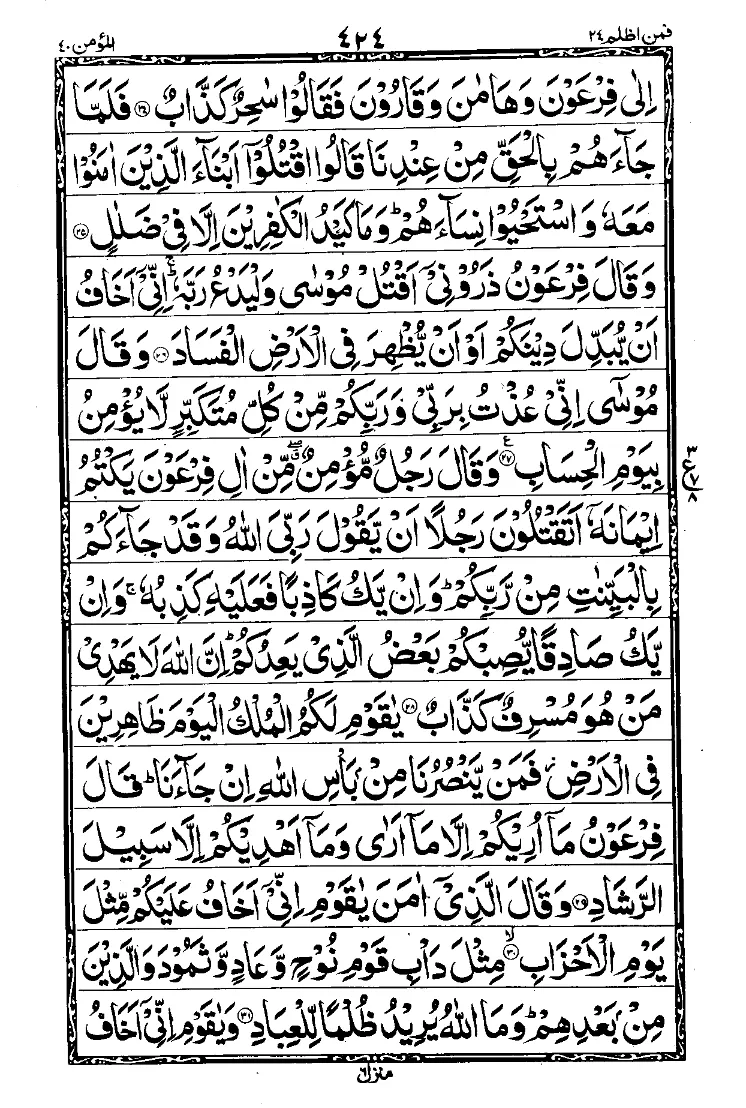 فمن اظلم ٢٤
٤٢٤
المؤمن ٤٠
اِلٰى فِرْعَوْنَ وَهَامٰنَ وَقَارُوْنَ فَقَالُوْا سٰحِرٌ كَذَّابٌ ﴿۲۴﴾ فَلَمَّا
جَآءَهُمْ بِالْحَقِّ مِنْ عِنْدِنَا قَالُوا اقْتُلُوْٓا اَبْنَآءَ الَّذِيْنَ اٰمَنُوْا
مَعَهٗ وَاسْتَحْيُوْا نِسَآءَهُمْ ؕ وَمَا كَيْدُ الْكٰفِرِيْنَ اِلَّا فِيْ ضَلٰلٍ ﴿۲۵﴾
وَقَالَ فِرْعَوْنُ ذَرُوْنِيْٓ اَقْتُلْ مُوْسٰى وَلْيَدْعُ رَبَّهٗ ۚ اِنِّيْٓ اَخَافُ
اَنْ يُّبَدِّلَ دِيْنَكُمْ اَوْ اَنْ يُّظْهِرَ فِى الْاَرْضِ الْفَسَادَ ﴿۲۶﴾ وَقَالَ
مُوْسٰٓى اِنِّيْ عُذْتُ بِرَبِّيْ وَرَبِّكُمْ مِّنْ كُلِّ مُتَكَبِّرٍ لَّا يُؤْمِنُ
بِيَوْمِ الْحِسَابِ ﴿۲۷﴾ ع وَقَالَ رَجُلٌ مُّؤْمِنٌ ۖ ق مِّنْ اٰلِ فِرْعَوْنَ يَكْتُمُ
٣ ع ٧ ٨
اِيْمَانَهٗٓ اَتَقْتُلُوْنَ رَجُلًا اَنْ يَّقُوْلَ رَبِّيَ اللّٰهُ وَقَدْ جَآءَكُمْ
بِالْبَيِّنٰتِ مِنْ رَّبِّكُمْ ؕ وَاِنْ يَّكُ كَاذِبًا فَعَلَيْهِ كَذِبُهٗ ۚ وَاِنْ
يَّكُ صَادِقًا يُّصِبْكُمْ بَعْضُ الَّذِيْ يَعِدُكُمْ ؕ اِنَّ اللّٰهَ لَا يَهْدِيْ
مَنْ هُوَ مُسْرِفٌ كَذَّابٌ ﴿۲۸﴾ يٰقَوْمِ لَكُمُ الْمُلْكُ الْيَوْمَ ظَاهِرِيْنَ
فِى الْاَرْضِ ز فَمَنْ يَّنْصُرُنَا مِنْۢ بَاْسِ اللّٰهِ اِنْ جَآءَنَا ؕ قَالَ
فِرْعَوْنُ مَآ اُرِيْكُمْ اِلَّا مَآ اَرٰى وَمَآ اَهْدِيْكُمْ اِلَّا سَبِيْلَ
الرَّشَادِ ﴿۲۹﴾ وَقَالَ الَّذِيْٓ اٰمَنَ يٰقَوْمِ اِنِّيْٓ اَخَافُ عَلَيْكُمْ مِّثْلَ
يَوْمِ الْاَحْزَابِ ﴿۳۰﴾ ۙ مِثْلَ دَاْبِ قَوْمِ نُوْحٍ وَّعَادٍ وَّثَمُوْدَ وَالَّذِيْنَ
مِنْۢ بَعْدِهِمْ ؕ وَمَا اللّٰهُ يُرِيْدُ ظُلْمًا لِّلْعِبَادِ ﴿۳۱﴾ وَيٰقَوْمِ اِنِّيْٓ اَخَافُ
منزل ٦